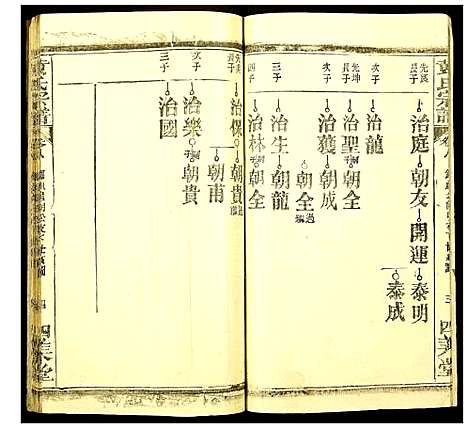 黄氏宗譜
卷八
三
四美堂
先良
長子
治庭
朝友
開運
泰明
泰成
次子
治龍
先坤
長子
治聖
朝全
次子
治獲
朝成
朝全
過繼
三子
治生
朝龍
四子
治林
朝全
長子
治保
朝貴
朝甫
次子
治樂
朝貴
三子
治國
黄氏宗譜
卷八
四
四美堂